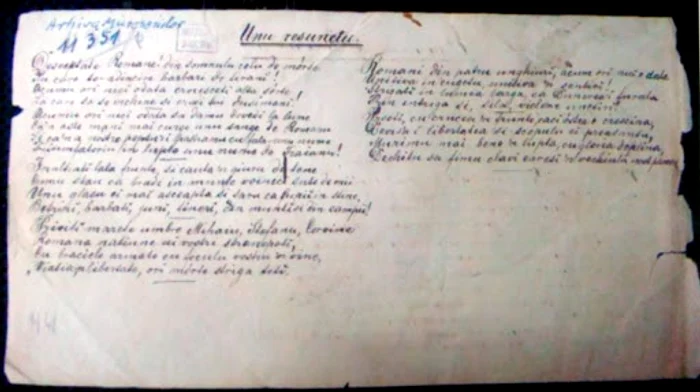 Arhiva Mureșenilor
11351
Unu resunetu.
Descéptate Romane! din somnulu celu de mórte
In care te-adâncira barbari de tirani!
Acumu ori nici odata croiesceti alta sórte!
La care sa se inchine si cruzii tei dusimani!
Acumu ori nici odata sa damu dovedi la lume
Ca'n aste mani mai curge unu sange de Romanu
Si ca'n a nostre pepturi pastramu cu fala unu nume
Triumfatoriu in lupte unu nume de Traianu!
Inaltiati lata frunte, si cauta'n giuru de tene
Cumu stau ca bradi in munte voinici sute de mii
Unu glasu ei mai asceapta si saru ca lupii in stane,
Betrâni, barbati, juni, tineri, din munti si din campii!
Priviti marete umbre Mihaiu, Stefanu, Corvine
Romana natiune ai vostri stranepoti,
Cu braciele armate cu foculu vostru'n vine,
"Viatia'n libertate, ori mórte striga toti.
Romani din patru unghiuri, acum ori nici odata
Uniti-ve in cugetu, uniti-ve'n simtiri!
Strigati in lumea larga, ca Dunarea-i furata
Prin intriga si sila, viclene uneltiri!
Preoti, cu crucea'n frunte, caci óstea e crestina,
Devisa-i libertatea si scopulu ei preasantu,
Murimu mai bine'n lupta, cu gloria deplina,
Decâtu sa fimu sclavi